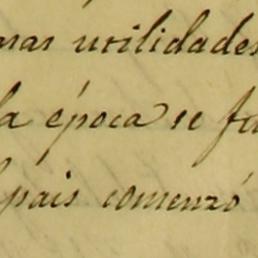 utilidades
la época se
país comenzó